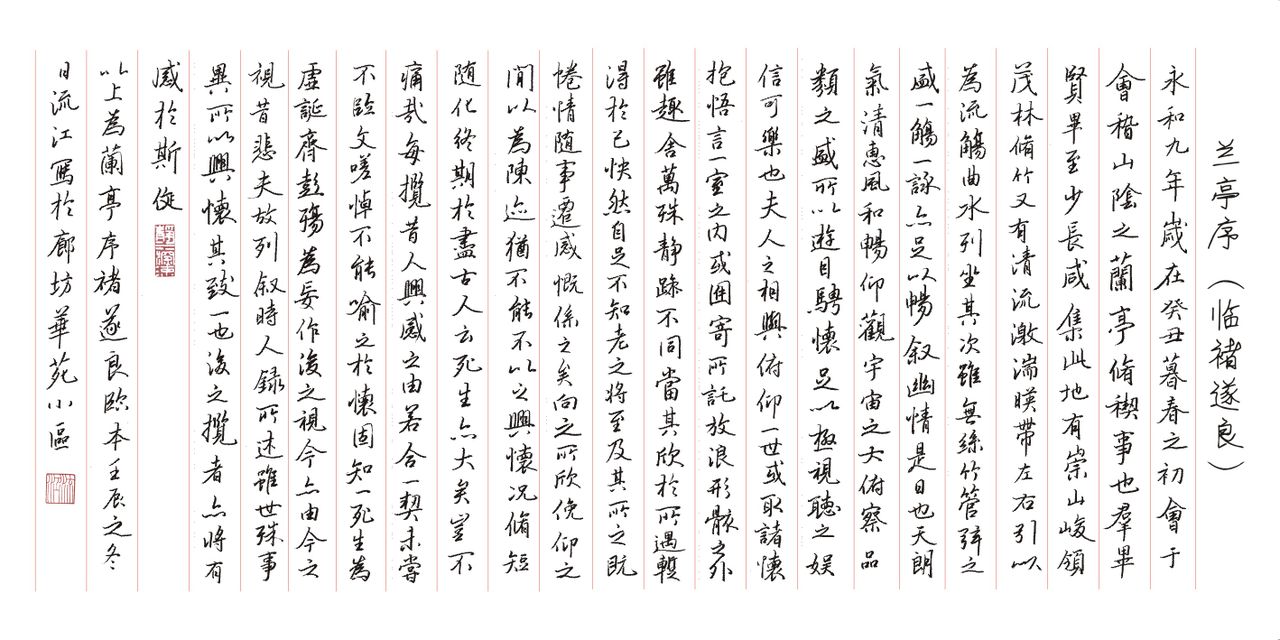 兰亭序（临褚遂良）
永和九年歲在癸丑暮春之初會于
會稽山陰之蘭亭脩稧事也羣畢
賢畢至少長咸集此地有崇山峻領
茂林脩竹又有清流激湍暎帶左右引以
為流觴曲水列坐其次雖無絲竹管弦之
盛一觴一詠亦足以暢叙幽情是日也天朗
氣清惠風和暢仰觀宇宙之大俯察品
類之盛所以遊目騁懷足以極視聽之娱
信可樂也夫人之相與俯仰一世或取諸懷
抱悟言一室之内或因寄所託放浪形骸之外
雖趣舍萬殊静躁不同當其欣於所遇暫
得於己怏然自足不知老之将至及其所之既
惓情随事遷感慨係之矣向之所欣俛仰之
間以為陳迹猶不能不以之興懷况脩短
随化終期於盡古人云死生亦大矣豈不
痛哉每攬昔人興感之由若合一契未嘗
不臨文嗟悼不能喻之於懷固知一死生為
虚誕齊彭殤為妄作後之視今亦由今之
視昔悲夫故列叙時人録所述雖世殊事
異所以興懷其致一也後之攬者亦将有
感於斯
以上為蘭亭序褚遂良臨本壬辰之冬
日流江寫於廊坊華苑小區